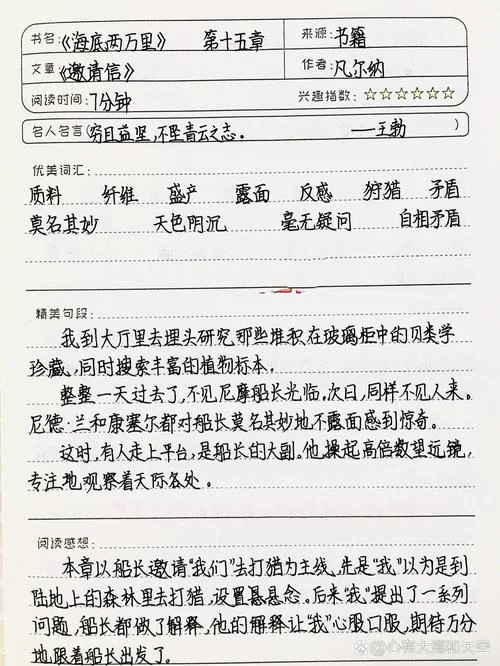 书名:《海底两万里》 第十五章 来源:书籍
文章《邀请信》 作者:凡尔纳
阅读时间:7分钟 兴趣指数:☆☆☆☆☆☆
名人名言(穷且益坚,不坠青云之志。 ——王勃)
优美词汇:
质料 纤维 盛产 露面 反感 狩猎 矛盾
莫名其妙 天色阴沉 毫无疑问 自相矛盾
精美句段:
我到大厅里去埋头研究那些堆积在玻璃柜中的贝类学
珍藏,同时搜索丰富的植物标本。
整整一天过去了,不见尼摩船长光临,次日,同样不见人来。
尼德·兰和康塞尔都对船长莫名其妙地不露面感到惊奇。
这时,有人走上平台,是船长的大副。他操起高倍数望远镜,
专注地观察着天际各处。
阅读感想:
本章以船长邀请“我们”去打猎为主线,先是“我”以为是到
陆地上的森林里去打猎,设置悬念。后来“我”提出了一系列
问题,船长都做了解释,他的解释让“我”心服口服,期待万分
地跟着船长出发了。
@心有大海和天空